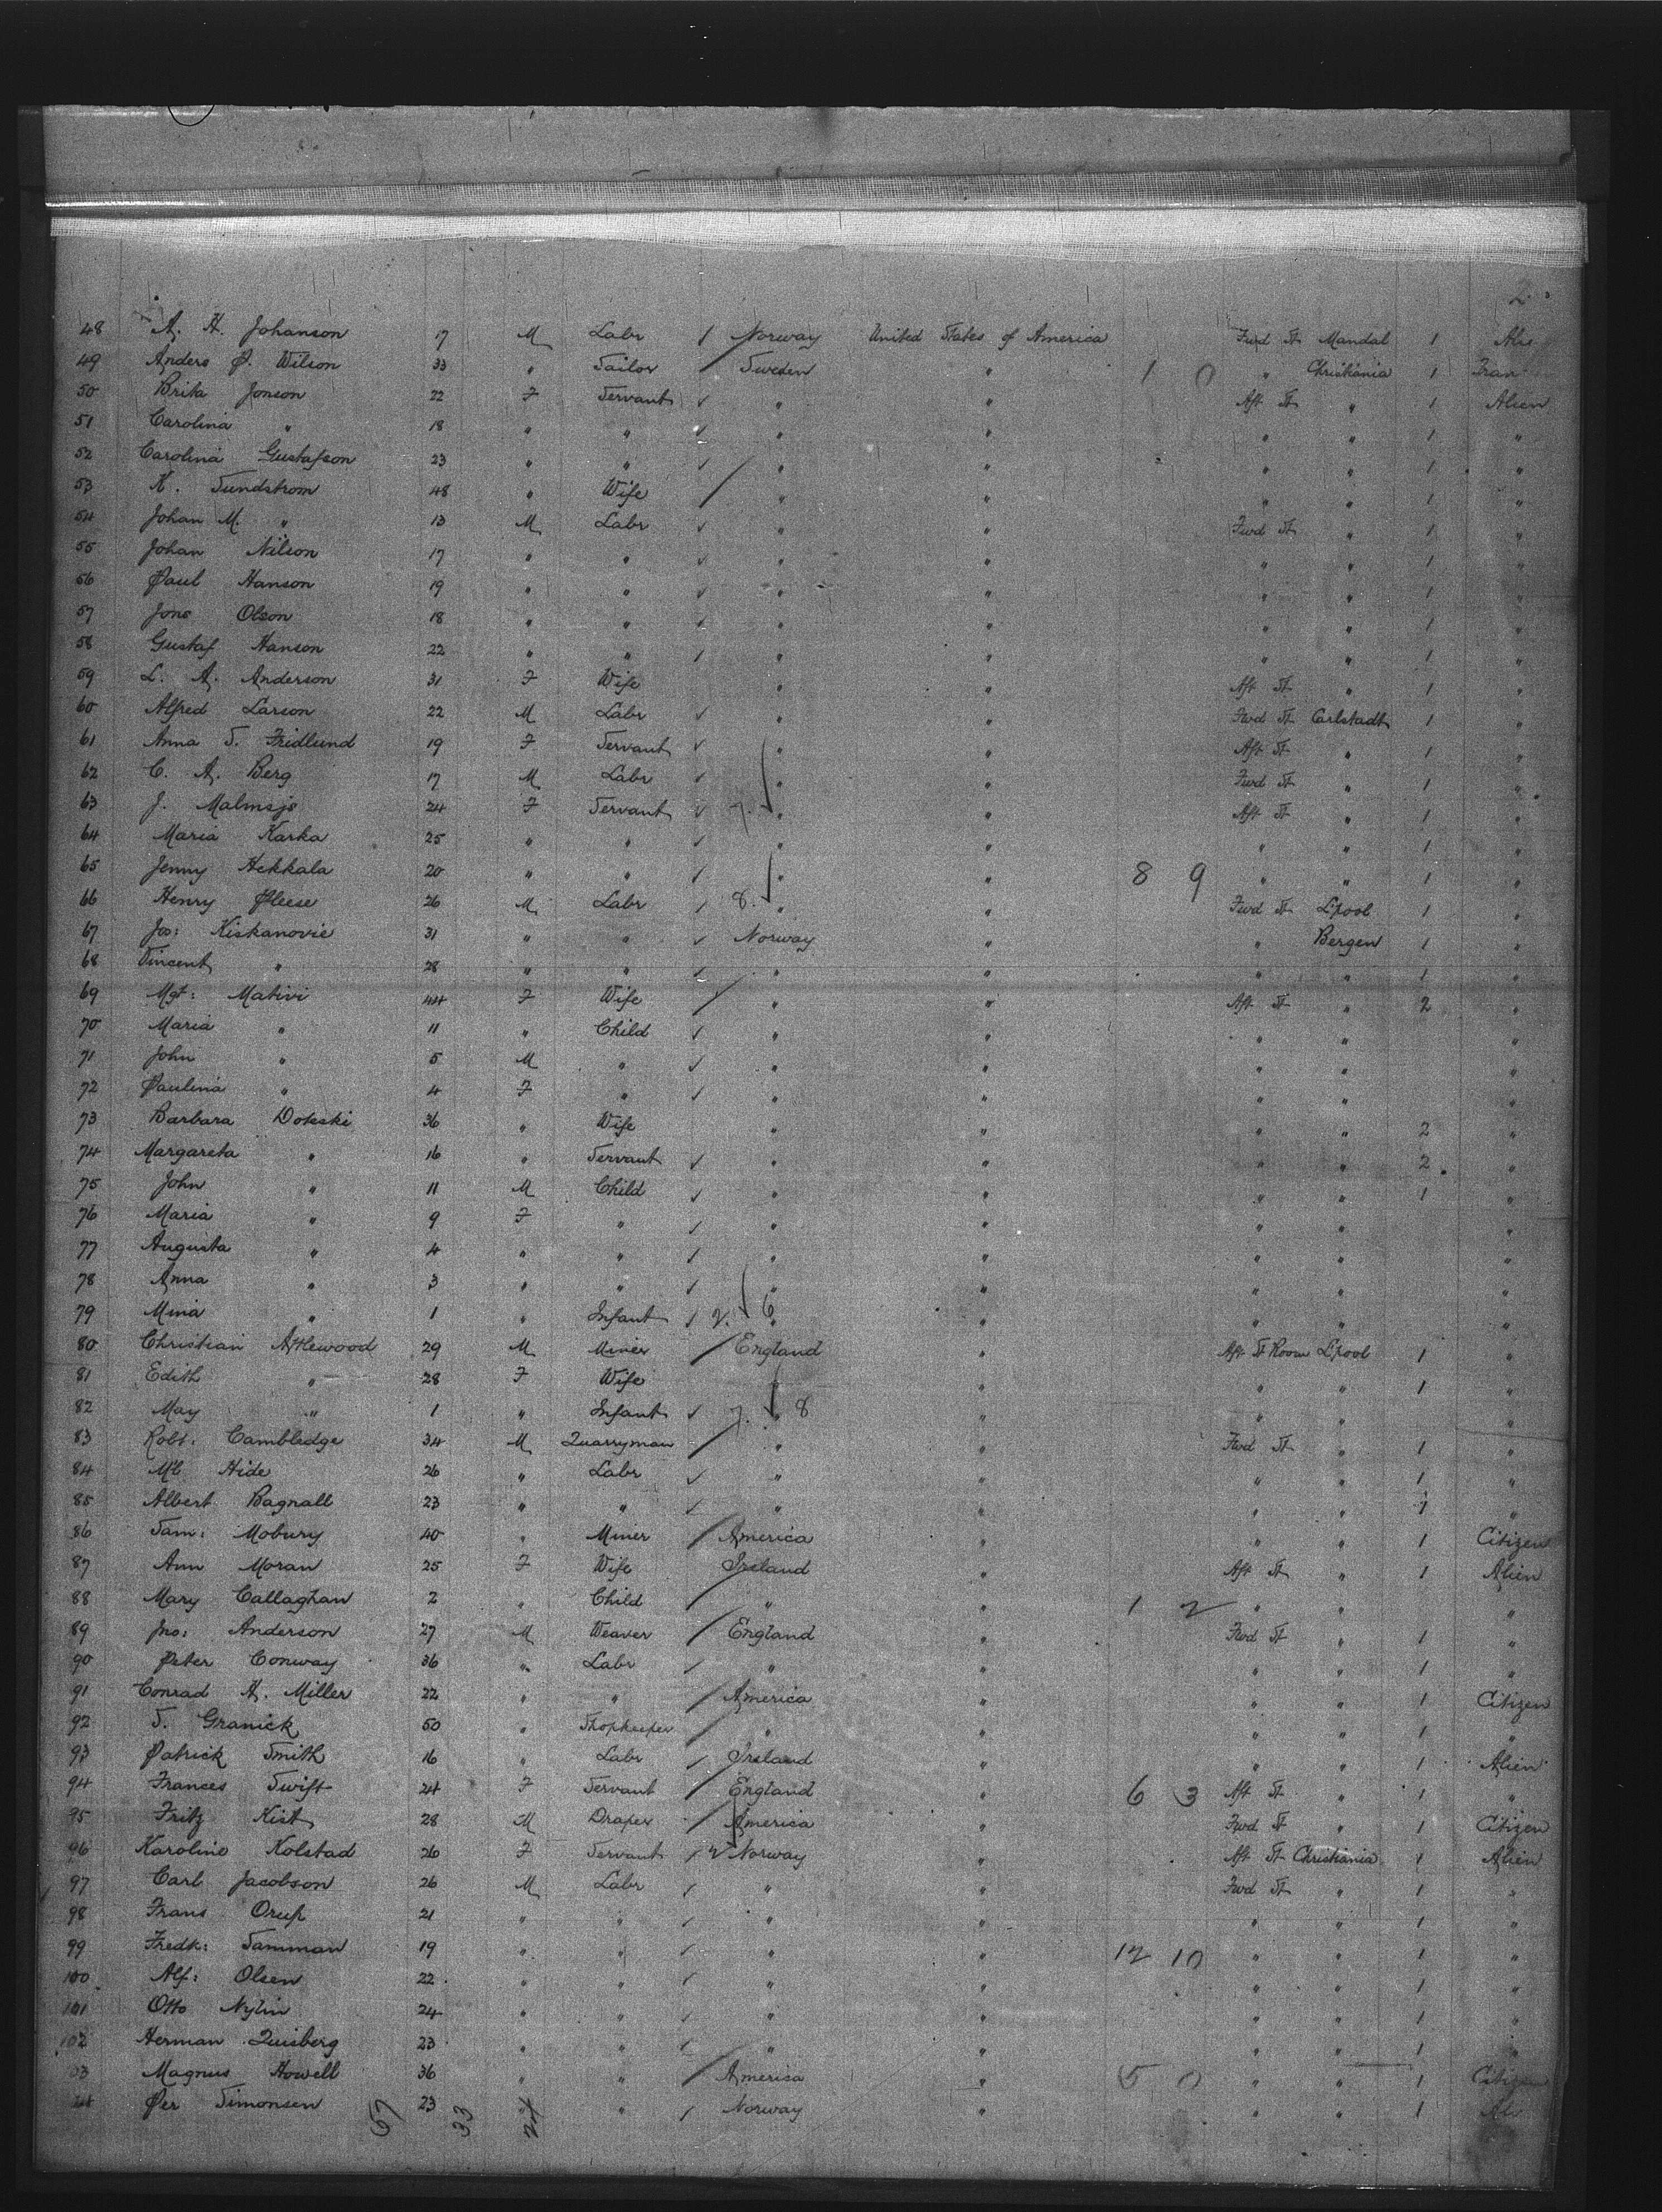 2.
48 A. H. Johanson 17 M Labr / Norway United States of America Fwd St Mandal 1
49 Anders P. Wilson 33 " Tailor / Sweden " 1 0 " Christiania 1 Tran
50 Brita Jonson 22 F Servant ✓ " " Aft St " 1 Alien
51 Carolina " 18 " " ✓ " " " " 1 "
52 Carolina Gustafson 23 " " ✓ " " " " 1 "
53 K. Sundstrom 48 " Wife / " " " " 1 "
54 Johan M. " 13 M Labr ✓ " " Fwd St " 1 "
55 Johan Nilson 17 " " ✓ " " " " 1 "
56 Paul Hanson 19 " " ✓ " " " " 1 "
57 Jons Olson 18 " " ✓ " " " " 1 "
58 Gustaf Hanson 22 " " / " " " " 1 "
59 L. A. Anderson 31 F Wife " " Aft St " 1 "
60 Alfred Larson 22 M Labr ✓ " " Fwd St Carlstadt 1 "
61 Anna S. Fridlund 19 F Servant ✓ " " Aft St " 1 "
62 C. A. Berg 17 M Labr ✓ " " Fwd St " 1 "
63 J. Malmsjo 24 F Servant ✓ 7. " " Aft St " 1 "
64 Maria Karka 25 " " ✓ " " " " 1 "
65 Jenny Hekkala 20 " " / " " 8 9 " " 1 "
66 Henry Pleese 26 M Labr / 8. " " Fwd St L'pool 1 "
67 Jos: Kiskanovic 31 " " ✓ Norway " " Bergen 1 "
68 Vincent " 28 " " ✓ " " " " 1 "
69 Mgt: Mativi 44 F Wife / " " Aft St " 2 "
70 Maria " 11 " Child ✓ " " " " "
71 John " 5 M " ✓ " " " " "
72 Paulina " 4 F " ✓ " " " " "
73 Barbara Doteski 36 " Wife " " " " 2 "
74 Margareta " 16 " Servant ✓ " " " " 2 "
75 John " 11 M Child ✓ " " " " 1 "
76 Maria " 9 F " ✓ " " " " "
77 Augusta " 4 " " ✓ " " " " "
78 Anna " 3 " " ✓ " " " " "
79 Mina " 1 " Infant / 2. 6 " " " " "
80 Christian Attlewood 29 M Miner / England " Aft St Room L'pool 1 "
81 Edith " 28 F Wife " " " 1 "
82 May " 1 " Infant ✓ 7. " 8 " " " "
83 Robt: Cambledge 34 M Quarryman / " " Fwd St " 1 "
84 Ml Hide 26 " Labr ✓ " " " " 1 "
85 Albert Bagnall 23 " " ✓ " " " " 1 "
86 Sam: Mobury 40 " Miner / America " " " 1 Citizen
87 Ann Moran 25 F Wife Ireland " Aft St " 1 Alien
88 Mary Callaghan 2 " Child / " " 1 2 " " "
89 Jno: Anderson 27 M Weaver / England " Fwd St " 1 "
90 Peter Conway 36 " Labr ✓ " " " " 1 "
91 Conrad H. Miller 22 " " / America " " " 1 Citizen
92 S. Granick 50 " Shopkeeper / " " " " 1 "
93 Patrick Smith 16 " Labr / Ireland " " " 1 Alien
94 Frances Swift 24 F Servant / England " 6 3 Aft St " 1 "
95 Fritz Kist 28 M Draper / America " Fwd St " 1 Citizen
96 Karoline Kolstad 26 F Servant / 2 Norway " Aft St Christiania 1 Alien
97 Carl Jacobson 26 M Labr / " " Fwd St " 1 "
98 Frans Orup 21 " " / " " " " 1 "
99 Fredk: Samman 19 " " / " " 12 10 " " 1 "
100 Alf: Olsen 22 " " / " " " " 1 "
101 Otto Nylin 24 " " / " " " " 1 "
102 Herman Quisberg 23 " " / " " " " 1 "
03 Magnus Howell 36 " " / America " 5 0 " " 1 Citizen
Per Simonsen 23 " " / Norway " " " 1
67 33 24